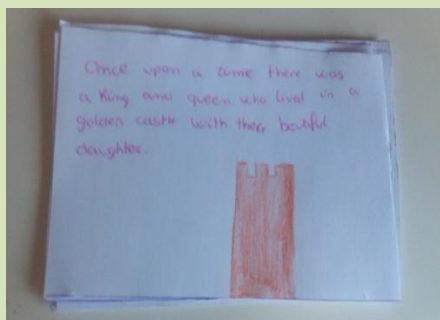 Once upon a time there was
a King and queen who lived in a
golden castle with there boutiful
daughter.